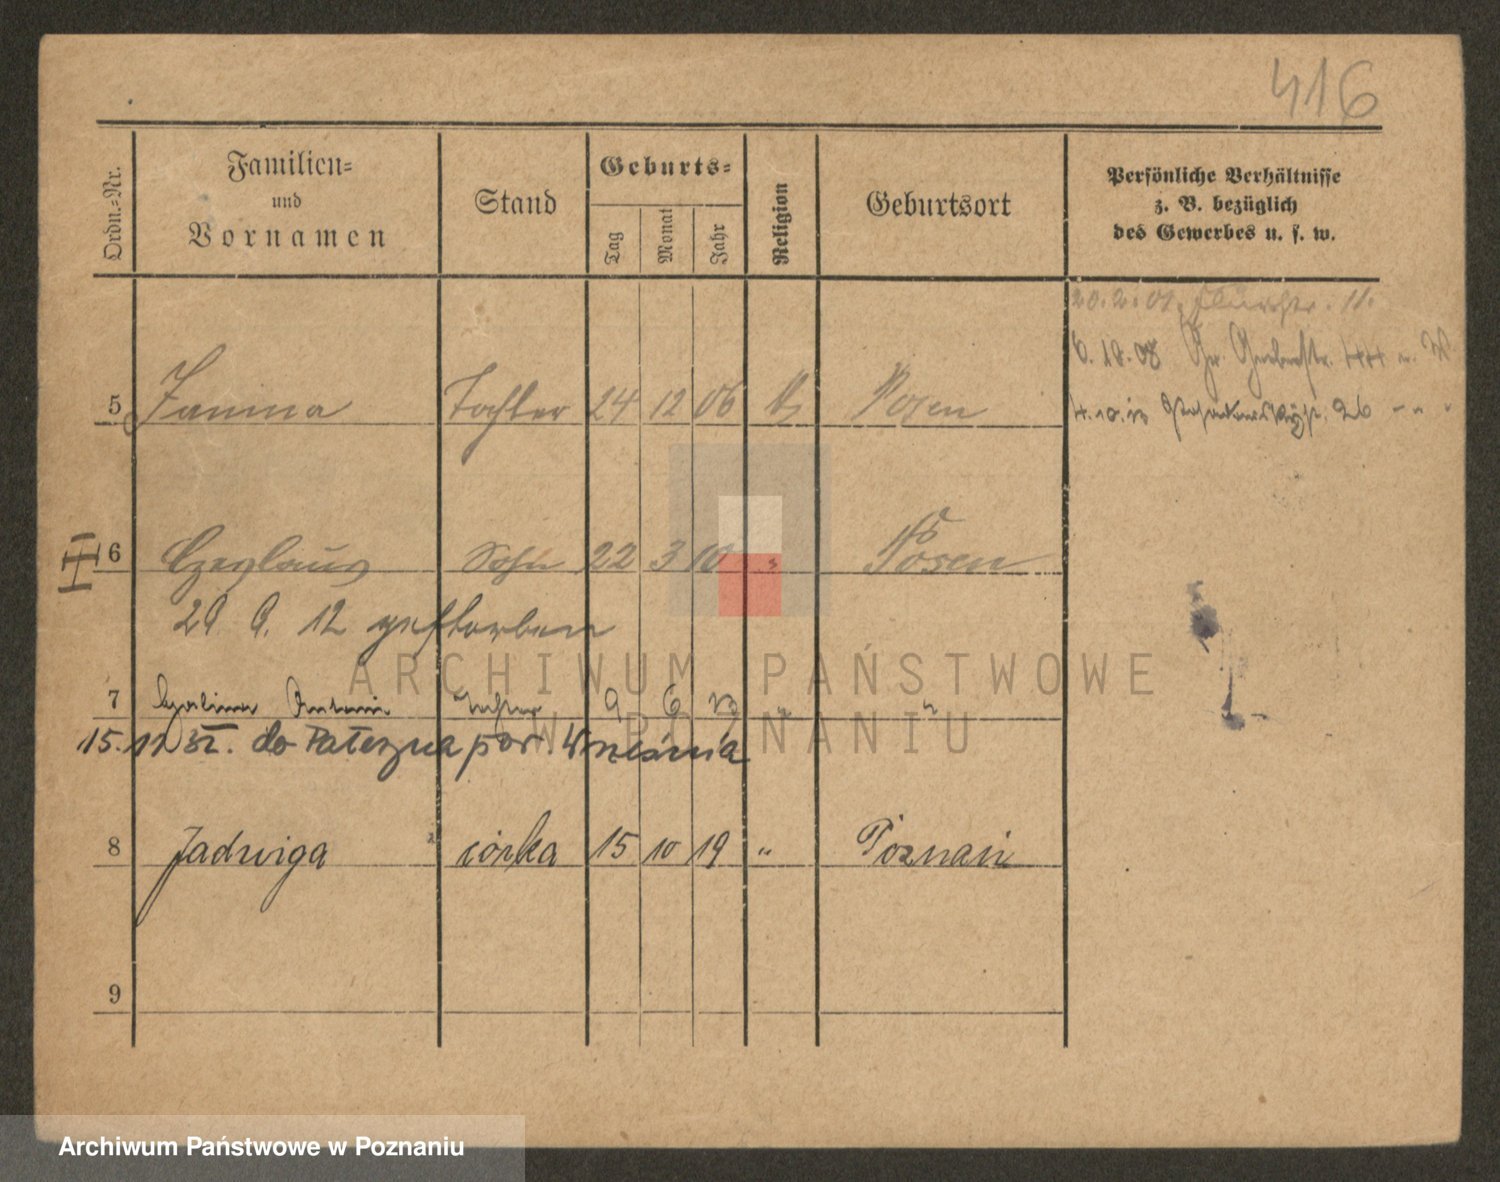 416
Ordn.-Nr. Familien- und Vornamen Stand Geburts- Tag Monat Jahr Religion Geburtsort Persönliche Verhältnisse z. B. bezüglich des Gewerbes u. s. w.
20.2.07. 11.
6.10.08 Gr. Gerberstr.
5 Janina Tochter 24 12 06 Posen
4.10.12 26 - " -
6 Czeslaus Sohn 22 3 10 " Posen
29 9. 12 gestorben
7 Antonie Tochter 9 6 13 " "
15.12 32. do Pałczyna pow. Września
8 Jadwiga córka 15 10 19 " Poznań
9
ARCHIWUM PAŃSTWOWE
W POZNANIU
Archiwum Państwowe w Poznaniu